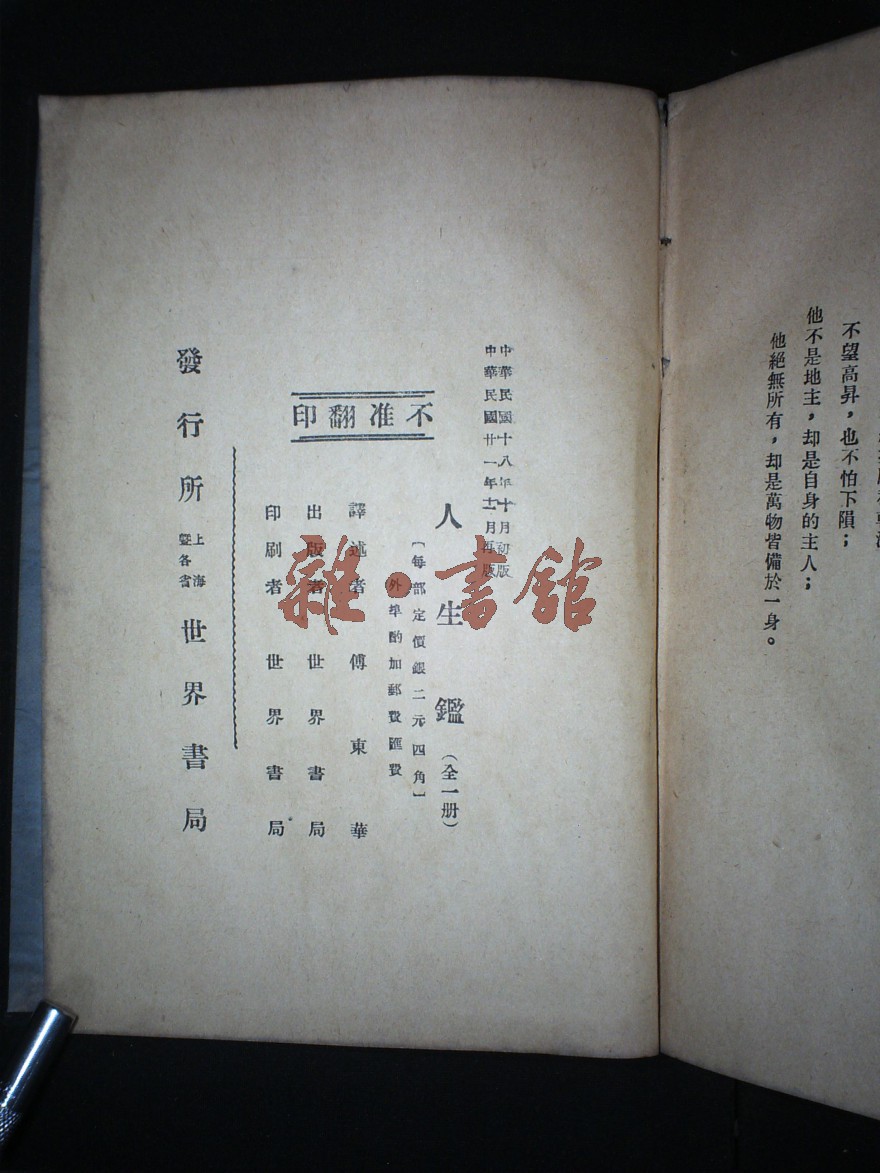 不望高昇，也不怕下隕；
他不是地主，却是自身的主人；
他絕無所有，却是萬物皆備於一身。
中華民國十八年十月初版
中華民國廿一年十一月再版
人生鑑（全一册）
〔每部定價銀二元四角〕
外埠酌加郵費匯費
不准翻印
譯述者 傅東華
出版者 世界書局
印刷者 世界書局
發行所 上海暨各省 世界書局
雜·書館